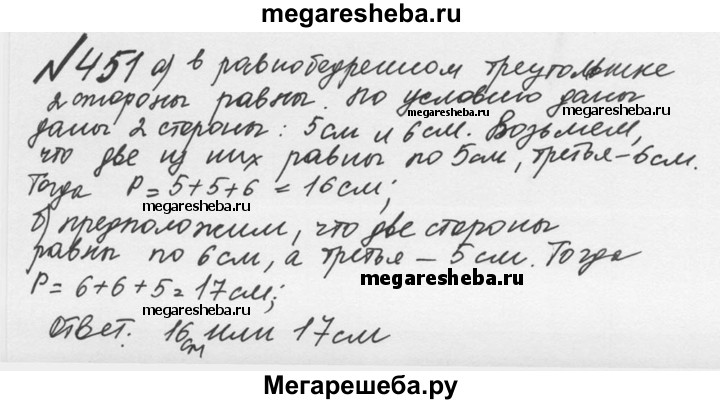 megaresheba.ru
№451 а) в равнобедренном треугольнике
2 стороны равны. по условию даны
megaresheba.ru
даны 2 стороны: 5см и 6см. Возьмем,
что две из них равны по 5см, третья – 6см.
Тогда P = 5+5+6 = 16см;
megaresheba.ru
б) предположим, что две стороны
megaresheba.ru
равны по 6см, а третья – 5см. Тогда
megaresheba.ru
P = 6+6+5 = 17см;
megaresheba.ru
Ответ. 16см или 17см
Мегарешеба.ру